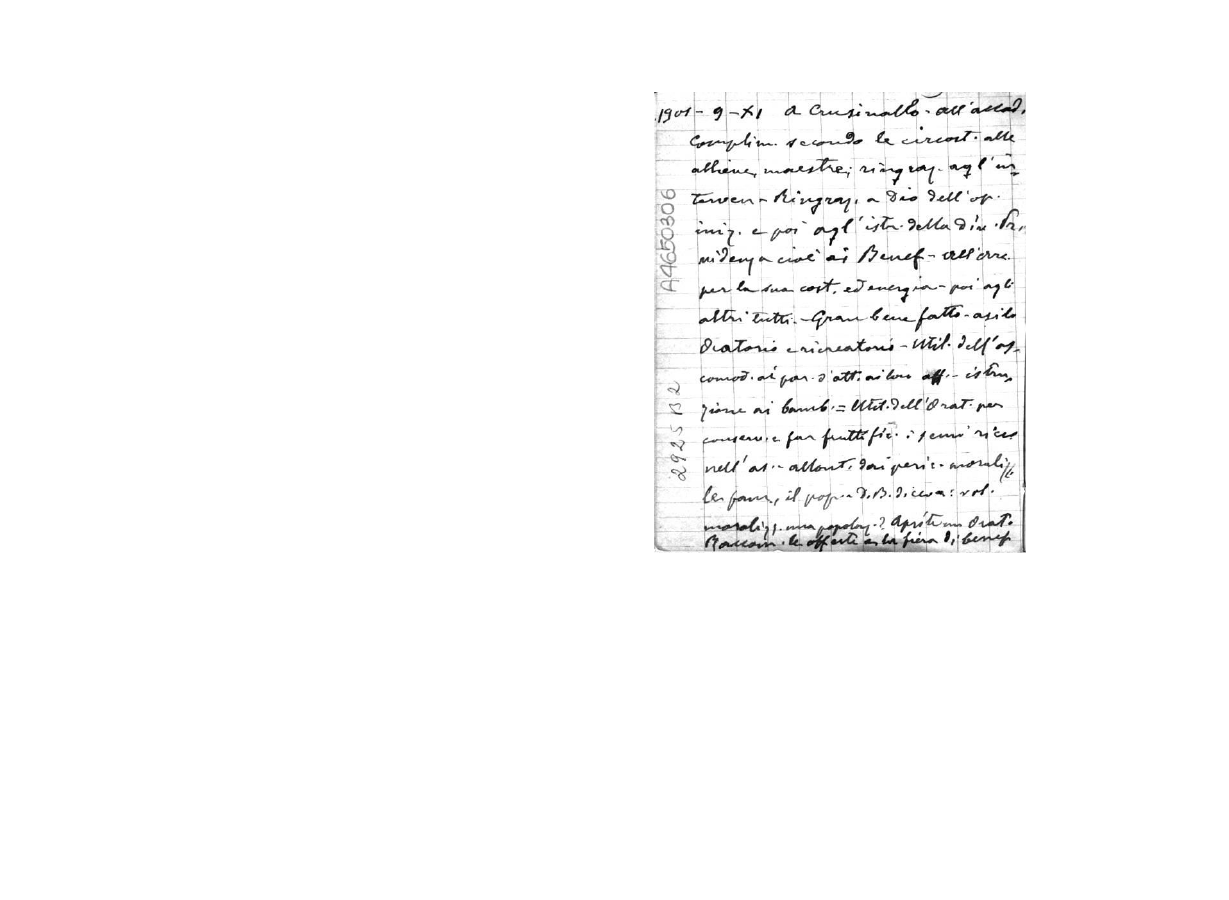 1901 - 9 - XI A Crusinallo - all'accad.
Complim. secondo le circost. alle
allieve, maestre; ringraz. agl'in=
terven - Ringraz. a Dio dell'op.
iniz. e poi agl'istr. della div. Prov
videnza cioè ai Benef - all'arc.
per la sua cost. ed energia - poi agli
altri tutti. - Gran bene fatto - asilo
Oratorio e ricreatorio - Util. dell'as.
comod. ai par. d'att. ai loro aff. - istru
zione ai bamb. = Util. dell'Orat. per
conserv. e far fruttific. i semi ricev
nell'as. - allont. dai peric. moraliz
le fam., il pop. - D.B. diceva: vol.
moralizz. una popolaz.? Aprite un Orat.
Raccom. le offerte e la fiera di benef
A4650306
2925 B 2